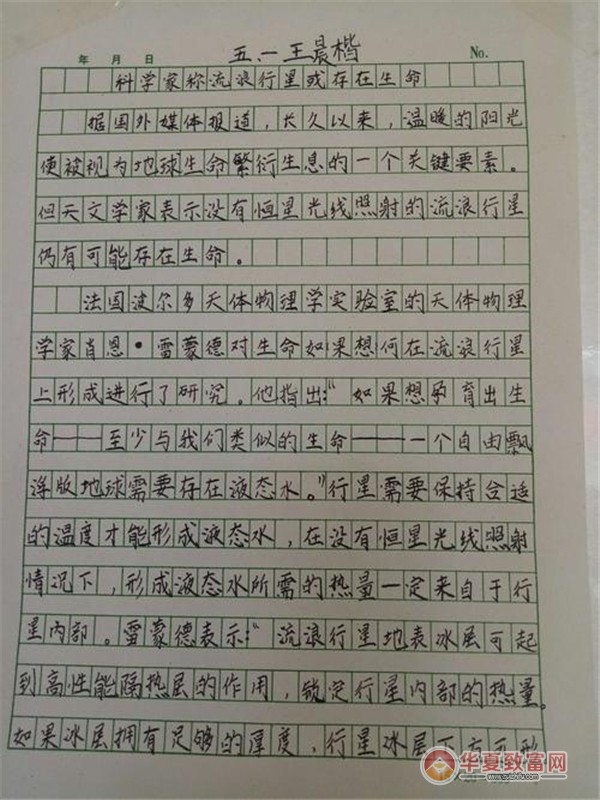 五.一王晨楷
年 月 日 No.
科学家称流浪行星或存在生命
据国外媒体报道，长久以来，温暖的阳光
便被视为地球生命繁衍生息的一个关键要素。
但天文学家表示没有恒星光线照射的流浪行星
仍有可能存在生命。
法国波尔多天体物理学实验室的天体物理
学家肖恩·雷蒙德对生命如果想何在流浪行星
上形成进行了研究。他指出:“如果想孕育出生
命——至少与我们类似的生命——一个自由飘
浮版地球需要存在液态水。”行星需要保持合适
的温度才能形成液态水，在没有恒星光线照射
情况下，形成液态水所需的热量一定来自于行
星内部。雷蒙德表示:“流浪行星地表冰层可起
到高性能隔热层的作用，锁定行星内部的热量。
如果冰层拥有足够的厚度，行星冰层下方可形
华夏致富网